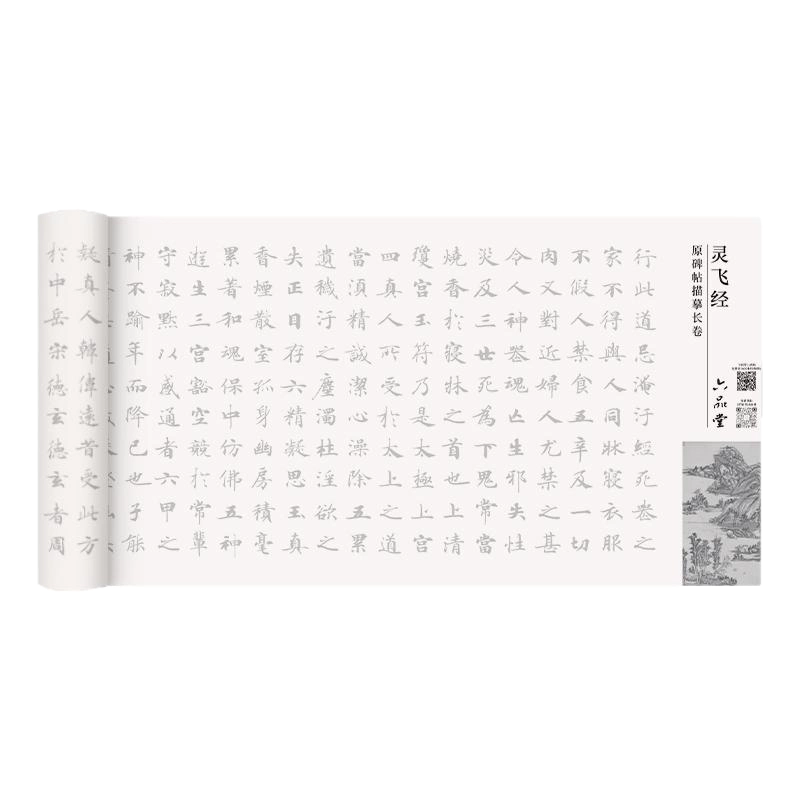 灵飞经
原碑帖描摹长卷
六品堂
行此道忌淹汙經死喪之
家不得與人同牀寢衣服
不假人禁食五辛及一切
肉又對近婦人尤禁之甚
令人神喪魂亡生邪失性
災及三世死為下鬼常當
燒香於寢牀之首也上清
瓊宮玉符乃是太極上宮
四真人所受於太上之道
當須精誠潔心澡除五累
遺穢汙之塵濁杜淫欲之
失正目存六精凝思玉真
香煙散室孤身幽房積毫
累著和魂保中仿佛五神
遊生三宮豁空競於常輩
守寂默以感通者六甲之
神不踰年而降已也子能
疑真人韓偉遠昔受此方
於中岳宋德玄德玄者周